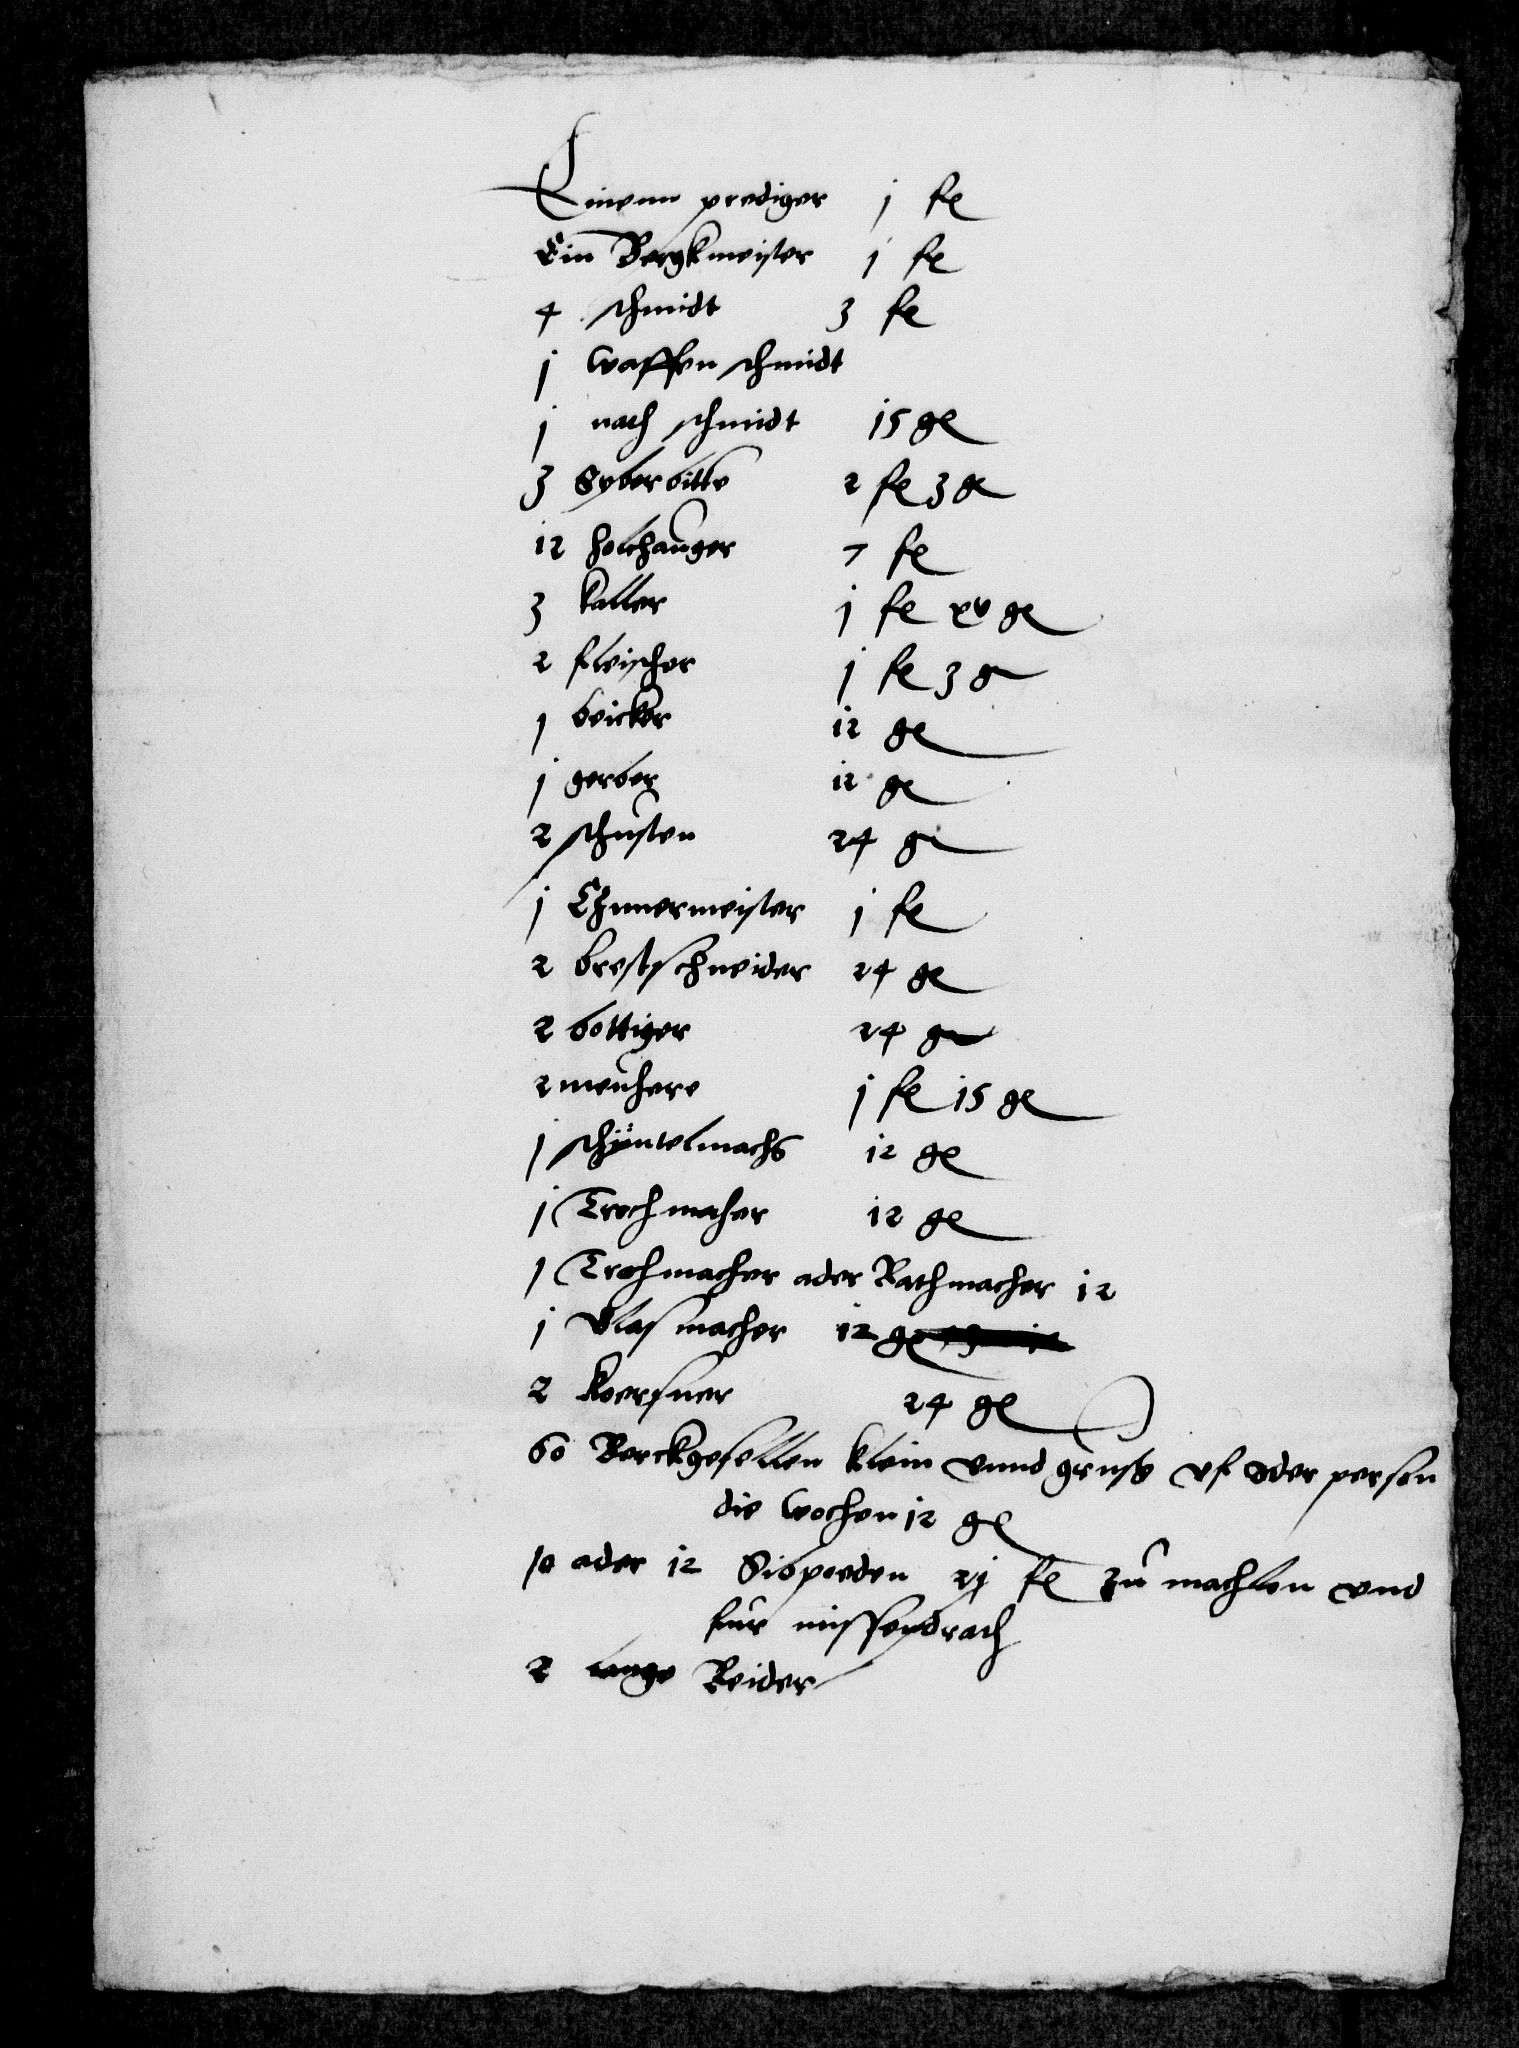 Einenn prediger j fl
Ein Bergkmeister j fl
4 schmidt 3 fl
j waffen schmidt
j nach schmidt 15 gl
3 Syberbitte 2 fl 3 gl
12 holchauger 7 fl
3 kaller j fl xv gl
2 fleischer j fl 3 g
j beicker 12 gl
j gerber 12 gl
2 schusten 24 g
j Czimermeister j fl
2 bretschneider 24 gl
2 bottiger 24 g
2 meuhere j fl 15 gl
j schyntelmachs 12 gl
j Trechmacher 12 gl
j Trechmacher ader Rathmacher 12
j Blasmacher 12 gl
2 koersner 24 gl
60 Berckgesellen klein vnnd gruss vf Jder person
die wochen 12 gl
10 ader 12 fl zu machlen vnd
fur
2 lange Reider